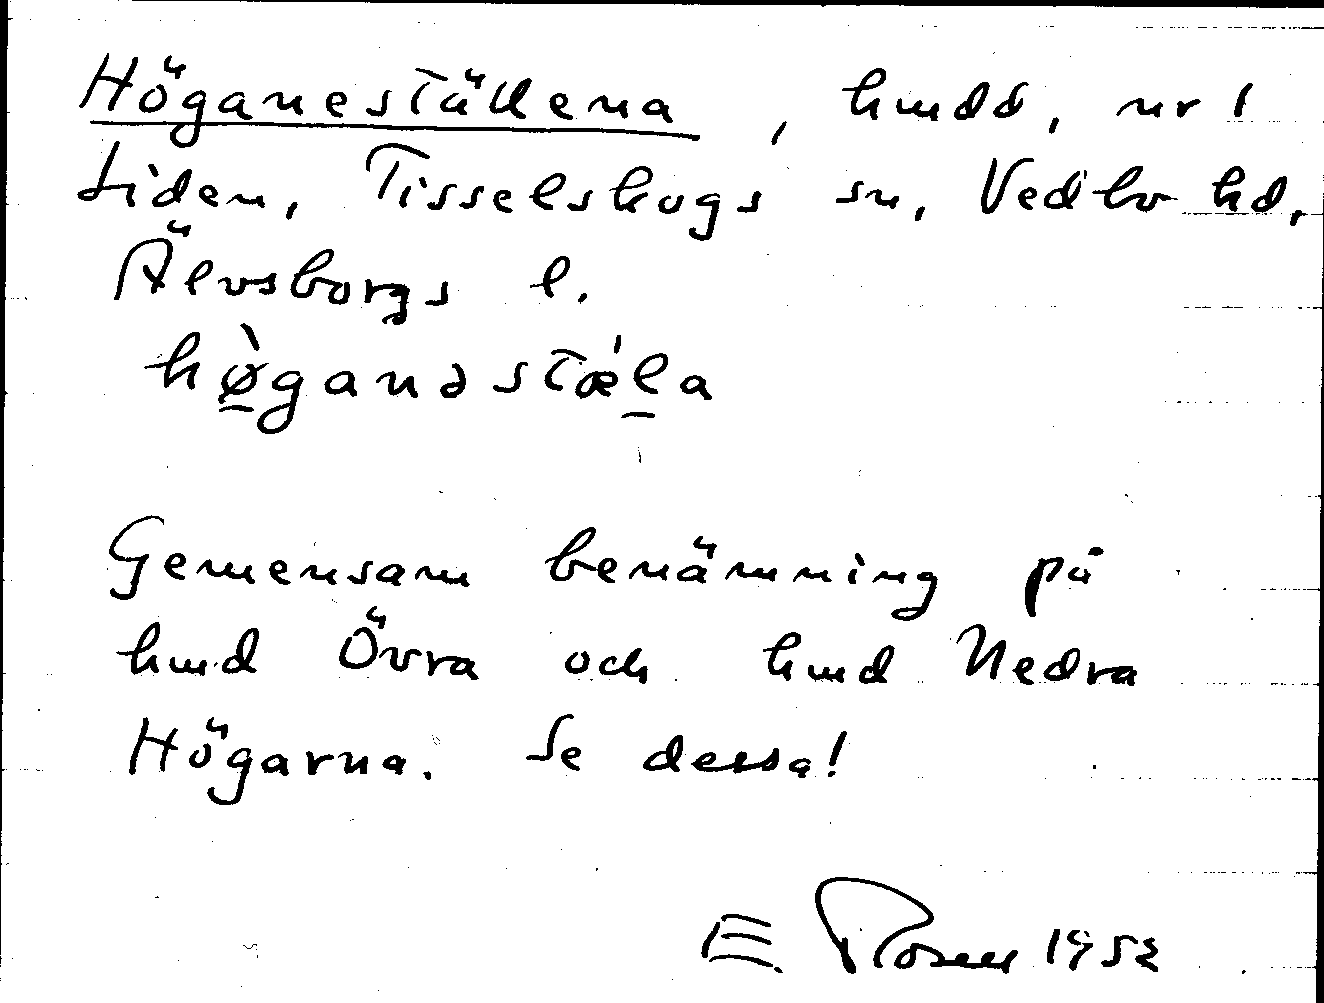 Höganeställena, hmdd, nr 1
Liden, Tisselskogs sn, Vedbo hd,
Älvsborgs l.
hø̀ganəstæ̍la
Gemensam benämning på
hmd Övra och hmd Nedra
Högarna. Se dessa!
E. Rosell 1952